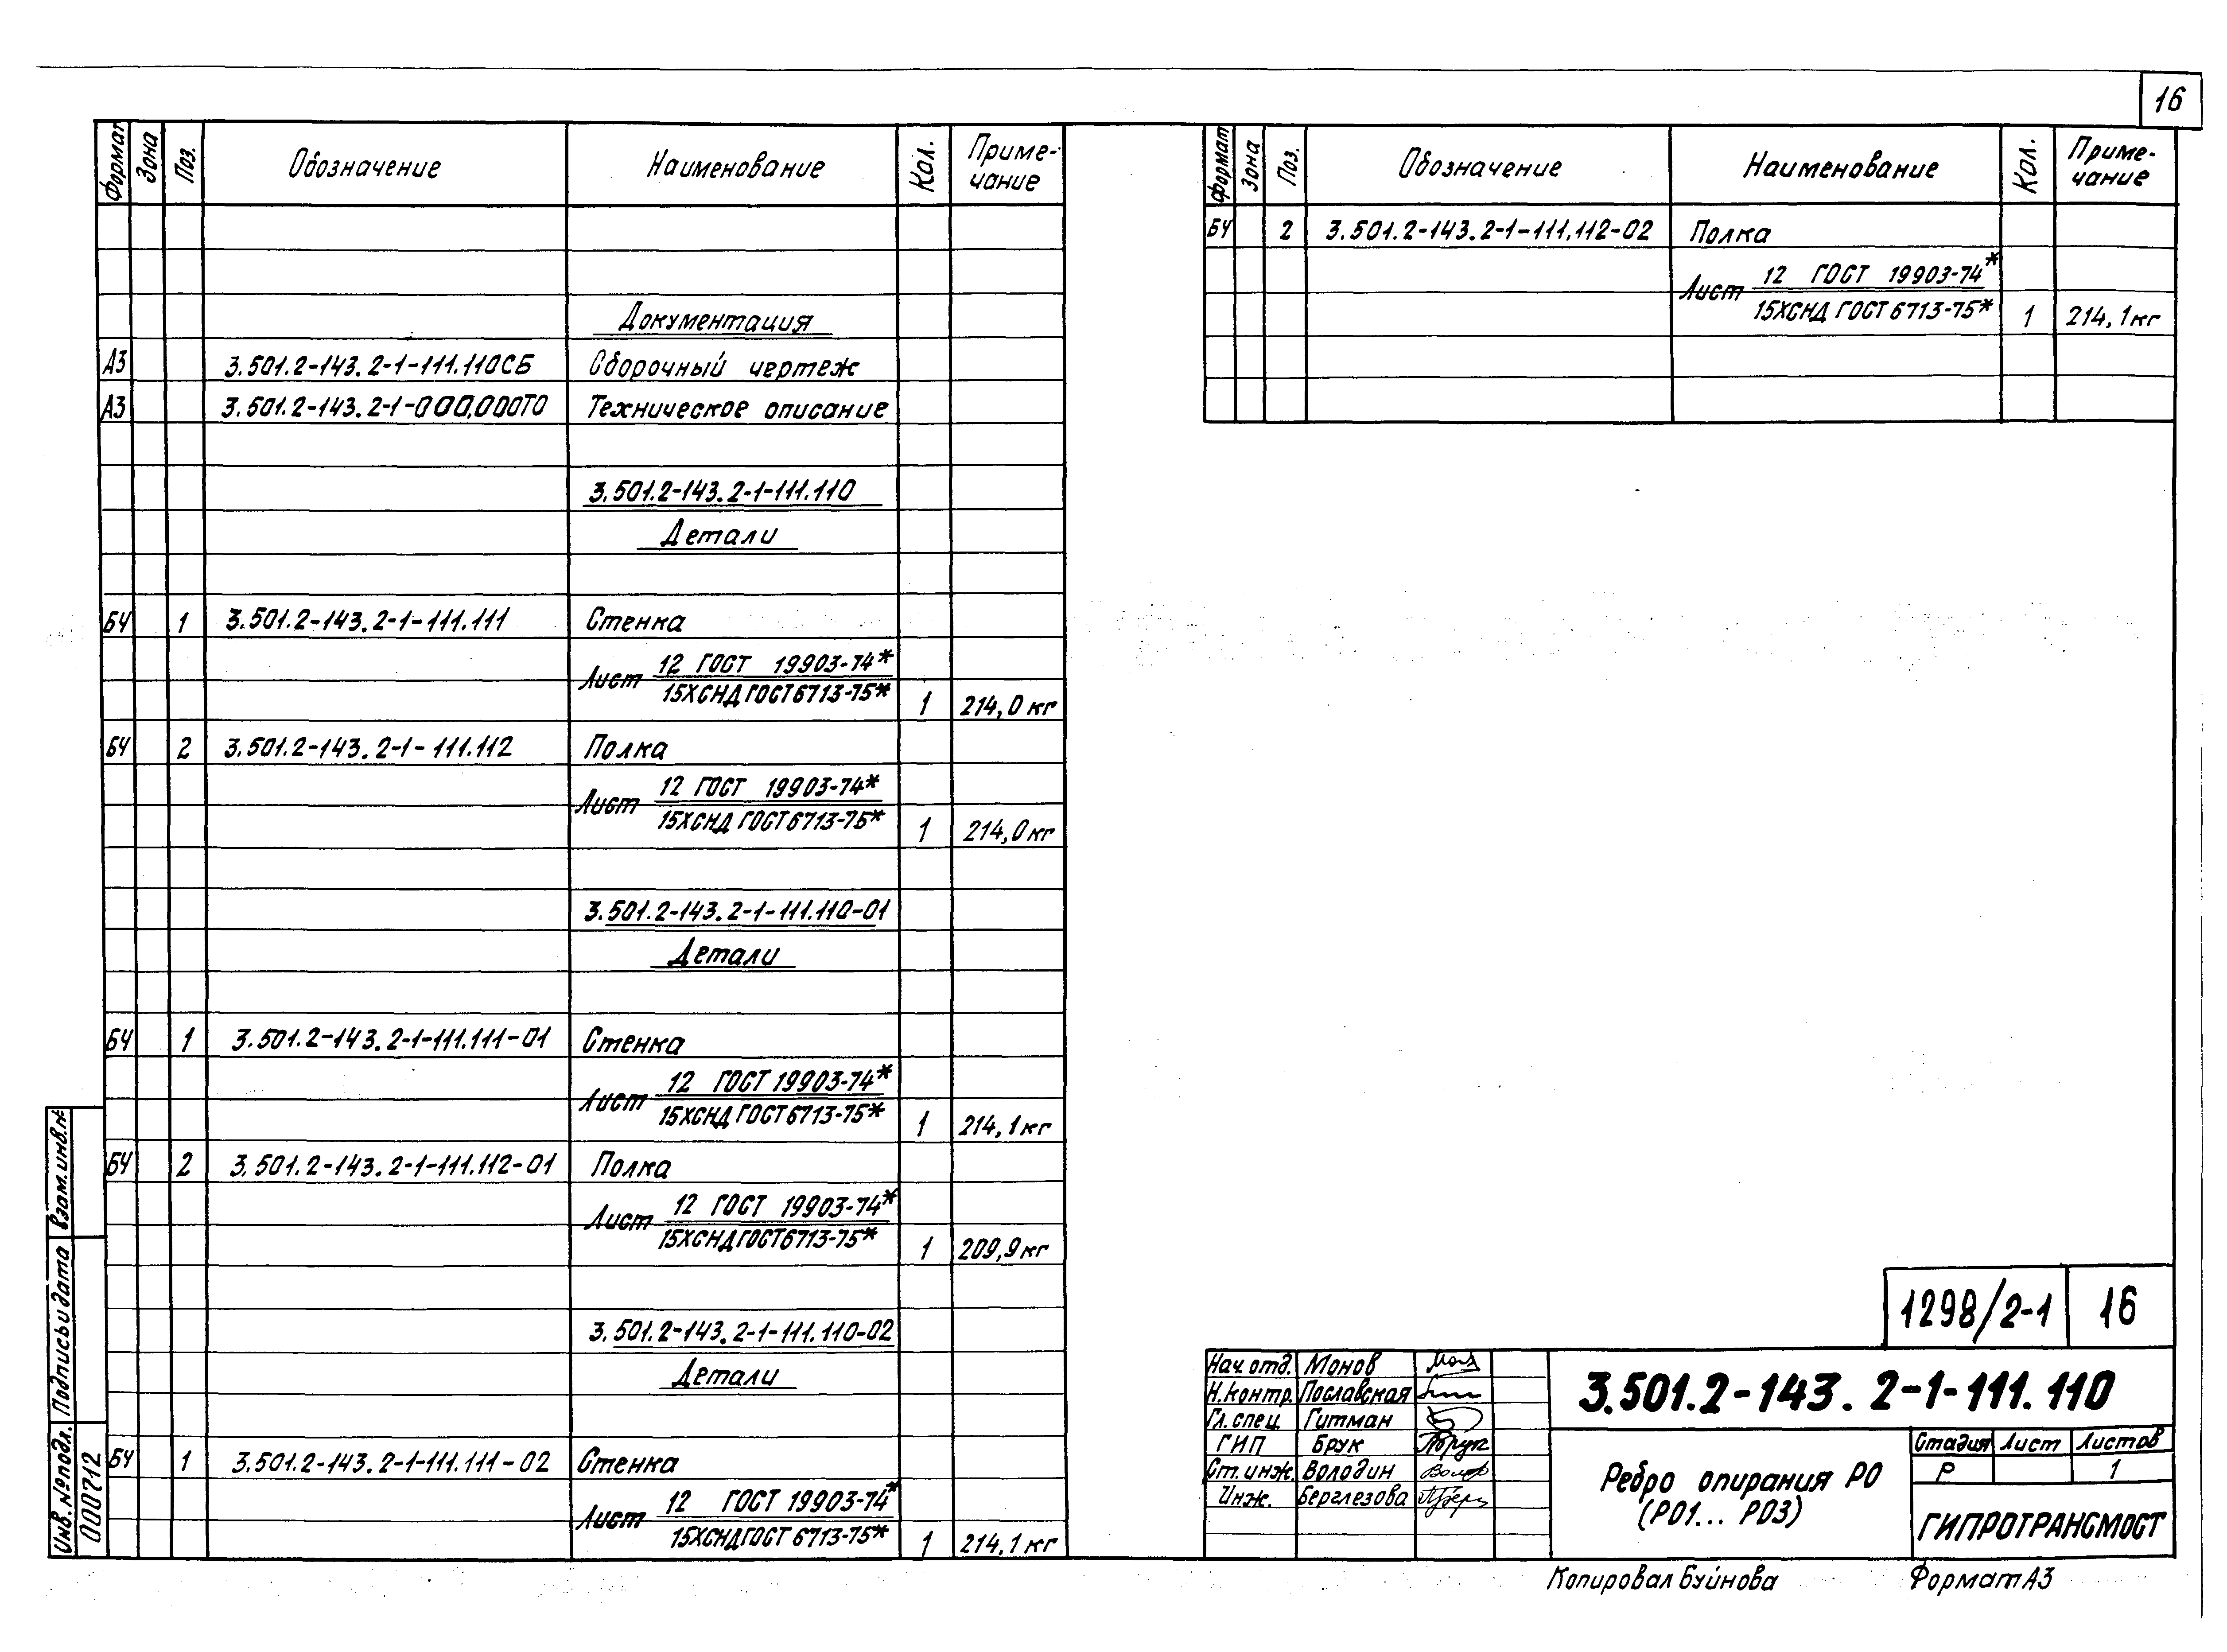 16
Формат Зона Поз. Обозначение Наименование Кол. Приме-
чание
Документация
А3 3.501.2-143.2-1-111.110СБ Сборочный чертеж
А3 3.501.2-143.2-1-000.000ТО Техническое описание
3.501.2-143.2-1-111.110
Детали
БЧ 1 3.501.2-143.2-1-111.111 Стенка
Лист 12 ГОСТ 19903-74*
15ХСНД ГОСТ 6713-75* 1 214,0 кг
БЧ 2 3.501.2-143.2-1-111.112 Полка
Лист 12 ГОСТ 19903-74*
15ХСНД ГОСТ 6713-75* 1 214,0 кг
3.501.2-143.2-1-111.110-01
Детали
БЧ 1 3.501.2-143.2-1-111.111-01 Стенка
Лист 12 ГОСТ 19903-74*
15ХСНД ГОСТ 6713-75* 1 214,1 кг
БЧ 2 3.501.2-143.2-1-111.112-01 Полка
Лист 12 ГОСТ 19903-74*
15ХСНД ГОСТ 6713-75* 1 209,9 кг
3.501.2-143.2-1-111.110-02
Детали
БЧ 1 3.501.2-143.2-1-111.111-02 Стенка
Лист 12 ГОСТ 19903-74*
15ХСНД ГОСТ 6713-75* 1 214,1 кг
Формат Зона Поз. Обозначение Наименование Кол. Приме-
чание
БЧ 2 3.501.2-143.2-1-111.112-02 Полка
Лист 12 ГОСТ 19903-74*
15ХСНД ГОСТ 6713-75* 1 214,1 кг
Взам. инв. №
Подпись и дата
Инв. № подл.
000712
1298/2-1 16
Нач. отд. Монов
Н. контр. Пославская
Гл. спец. Гитман
ГИП Брук
Ст. инж. Володин
Инж. Берглезова
3.501.2-143.2-1-111.110
Ребро опирания РО
(РО1... РО3)
Стадия Лист Листов
Р 1
ГИПРОТРАНСМОСТ
Копировал Буйнова Формат А3